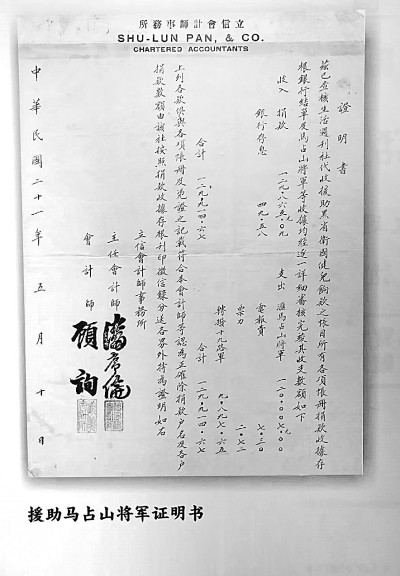 立信會計師事務所
SHU-LUN PAN, & CO.
CHARTERED ACCOUNTANTS
證明書
茲已查核生活週刊社代收援助黑省衛國健兒餉款之帳目所有各項帳冊捐款收據存
根銀行結單及馬占山將軍等收據均經逐一詳細審核完竣其收支數額如下
收入 捐款 一二九·八六五·〇九元 支出 滙馬占山將軍 一二〇·〇〇七·〇〇元
銀行存息 四九·五八 電報費 七·三〇
票力 二·七二
轉撥十九路軍 九·八九七·六五
合計 一二九·九一四·六七 合計 一二九·九一四·六七
上列各款俱與各項帳冊及憑證之記載符合本會計師等認為正確除捐款戶名及各戶
捐款數額由該社按照捐款收據存根刊印徵信錄分送各界外特為證明如右
立信會計師事務所
主任會計師 潘序倫
會計師 顧詢
中華民國二十一年五月十日
援助马占山将军证明书